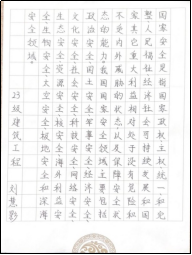 国家安全是指国家政权主权统一和完
整人民福祉经济社会可持续发展和国
家其它重大利益相对处于没有危险和
不受内外威胁的状态以及保障安全状
态的能力。我国国家安全领域主要包括
政治安全国土安全军事安全经济安全
文化安全社会安全科技安全网络安全
生态安全资源安全核安全海外利益安
全生物安全太空安全极地安全和深海
安全领域。
23级建筑工程 刘